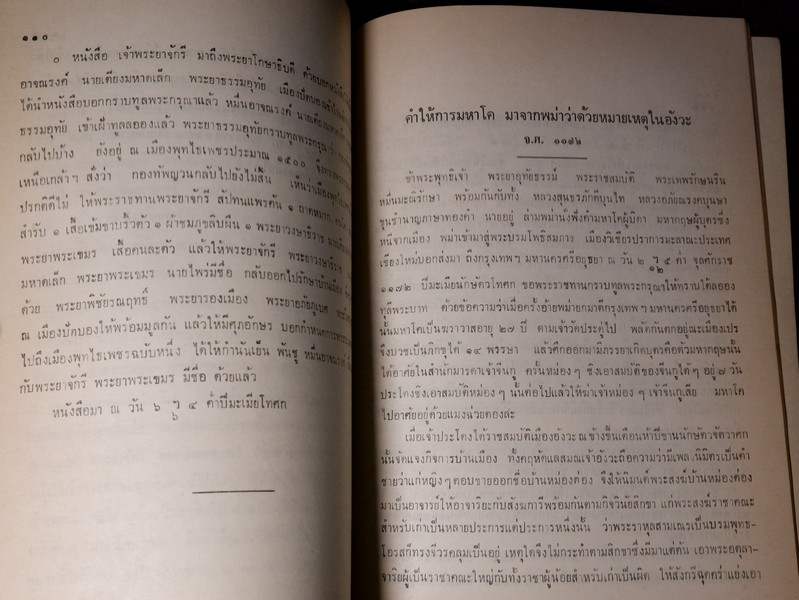 ๑๑๐
๐ หนังสือ เจ้าพระยาจักรี มาถึงพระยาโกษาธิบดี ด้วยบอกหนังสือ
อาจณรงค์ นายเตียงมหาดเล็ก พระยาธรรมอุทัย เมืองปัตบอง
ได้นำหนังสือบอกกราบทูลพระกรุณาแล้ว หมื่นอาจณรงค์ นายเตียงมหาดเล็ก
ธรรมอุทัย เข้าเฝ้าทูลลอองแล้ว พระยาธรรมอุทัยกราบทูลพระกรุณา ว่า
กลับไปบ้าง ยังอยู่ ณ เมืองพุทไธเพชรประมาณ ๑๕๐๐
เหนือเกล้าฯ สั่งว่า กองทัพญวนกลับไปยังไม่สิ้น เห็นว่าเมือง
ปรกติดีไม่ ให้พระราชทานพระยาจักรี สัปทนแพรคัน ๑ ถาดหมาก
สำรับ ๑ เสื้อเข้มขาบริ้วตัว ๑ ผ้าชมภูขลิบผืน ๑ พระยาวงษาธิราช
พระยาพระเขมร เสื้อคนละตัว แล้วให้พระยาจักรี พระยาวงษาธิราช
มหาดเล็ก พระยาพระเขมร นายไพร่มีชื่อ กลับออกไปรักษาบ้านเมือง
ด้วย พระยาพิชัยรณฤทธิ์ พระยารองเมือง พระยาอภัยภูเบศ
ณ เมืองปัตบองให้พร้อมมูลกัน แล้วให้มีศุภอักษร บอกกำหนดการ
ไปถึงเมืองพุทไธเพชรฉบับหนึ่ง ได้ให้กำนันเย็น พันชู หมื่นอาจณรงค์
กับพระยาจักรี พระยาพระเขมร มีชื่อ ด้วยแล้ว
หนังสือมา ณ วัน ๖ ฯ ๔ ค่ำปีมะเมียโทศก
๖
คำให้การมหาโค มาจากพม่าว่าด้วยหมายเหตุในอังวะ
จ.ศ. ๑๑๗๒
ข้าพระพุทธิเจ้า พระยาอุทัยธรรม์ พระราชสมบัติ พระเทพรักษนริน
หมื่นมะณีรักษา พร้อมกันกับทั้ง หลวงสุนธรภักดีบุนไท หลวงอภัยณรงคบุนษา
ขุนชำนาญภาษาทองคำ นายอยู่ ล่ามพม่านั่งฟังคำมหาโคผู้บิดา มหากฤษผู้บุตรซึ่ง
หนีจากเมือง พม่าเข้ามาสู่พระบรมโพธิสมภาร เมืองวิเชียรปราการมะลาณะประเทศ
เชียงใหม่บอกส่งมา ถึงกรุงเทพฯ มหานครศรีอยุธยา ณ วัน ๒ ฯ ๕ ค่ำ จุลศักราช
๑๒
๑๑๗๒ ปีมะเมียนักษัตวโทศก ขอพระราชทานกราบทูลพระกรุณาให้ทราบใต้ลออง
ธุลีพระบาท ด้วยข้อความว่าเมื่อครั้งอ้ายพม่ายกมาตีกรุงเทพฯ มหานครศรีอยุธยาได้
นั้นมหาโคเป็นฆราวาสอายุ ๒๗ ปี ตามเจ้าวัดประดู่ไป พลัดกันตกอยู่ณะเมืองแปร
จึงบวชเป็นภิกษุได้ ๑๔ พรรษา แล้วศึกออกมามีภรรยาเกิดบุตรคือตัวมหากฤษนั้น
ได้อาศัยในสำนักมารดาเจ้าจีนกู ครั้นหม่องๆ ชิงเอาสมบัติของจีนกูได้ๆ อยู่ ๗ วัน
ประโดงชิงเอาสมบัติหม่องๆ นั้นต่อไปแล้วให้ฆ่าเจ้าหม่องๆ เจ้าจีนกูเสีย มหาโค
ไปอาศัยอยู่ด้วยแมงฉ่วยตองละ
เมื่อเจ้าประโดงได้ราชสมบัติเมืองอังวะ ณ ข้างขึ้นเดือนห้าปีขานนักษัตวจัตวาศก
นั้นจัดแจงกิจการบ้านเมือง ทั้งคฤหัดแลสมณเจ้าอังวะถือความว่ามีเพลงนิมิตรเป็นคำ
ชายว่าแก่หญิงๆ ตอบขายออกชื่อบ้านหม่องค่อง จึงให้นิมนต์พระสงฆ์บ้านหม่องค่อง
มาเป็นอาจารย์ให้อาจาริยะกับสังฆการีพร้อมกันตามกิจวินัยสิกขา แก่พระสงฆ์ราชาคณะ
สำหรับเก่าเป็นหลายประการแต่ประการหนึ่งนั้น ว่าพระราหุลสามเณรเป็นบรมพุทธ-
โอรสก็ทรงจีวรคลุมเป็นอยู่ เหตุใดจึงไม่กระทำตามสิกขาซึ่งมีมาแต่ต้น เอาพระอตุลา-
จาริยผู้เป็นราชาคณะใหญ่กับทั้งราชาผู้น้อยสำหรับเก่าเป็นผิด ให้สังกรีฉุดคร่าแย่งเอา